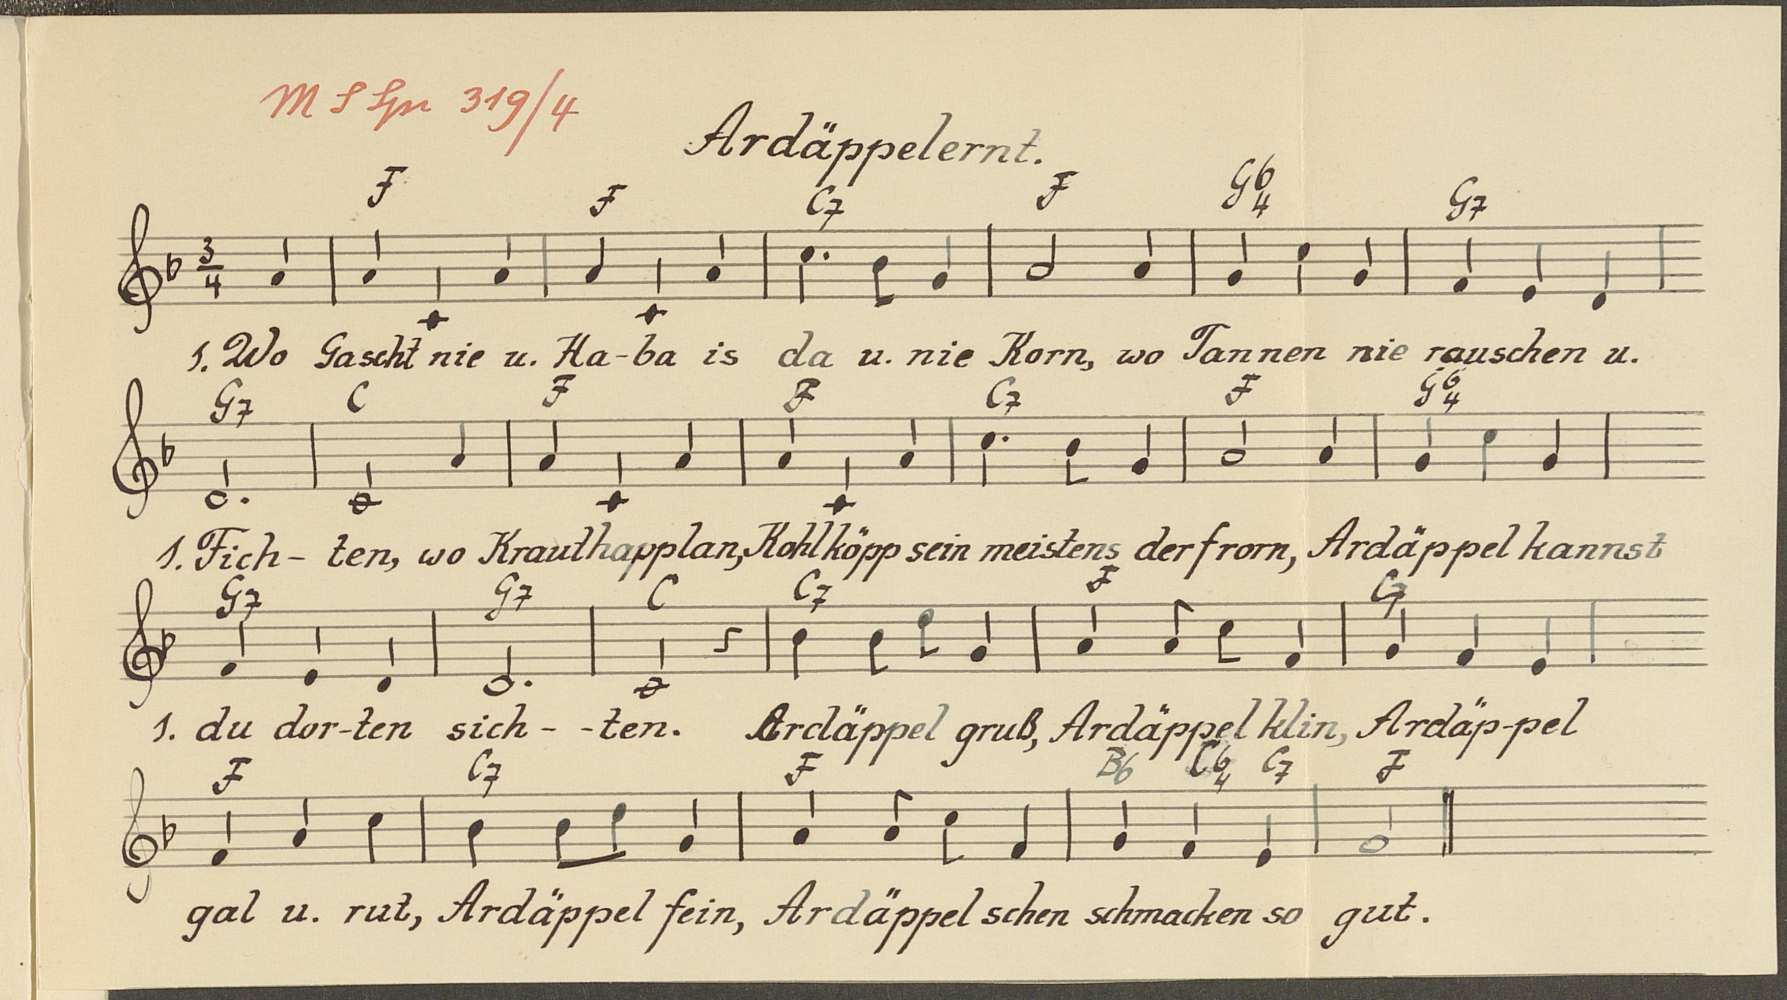 319/4
Ardäppelernt.
F F C7 F G6/4 G7
3/4
1. Wo Gascht nie u. Ha-ba is da u. nie Korn, wo Tannen nie rauschen u.
G7 C F F C7 F G6/4
1. Fich- ten, wo Krauthapplan, Kohlköpp sein meistens derfrorn, Ardäppel kannst
G7 G7 C C7 F C7
1. du dor-ten sich- -ten. Ardäppel gruß, Ardäppel klin, Ardäp-pel
F C7 F B6 C6/4 C7 F
gal u. rut, Ardäppel fein, Ardäppel schen schmacken so gut.